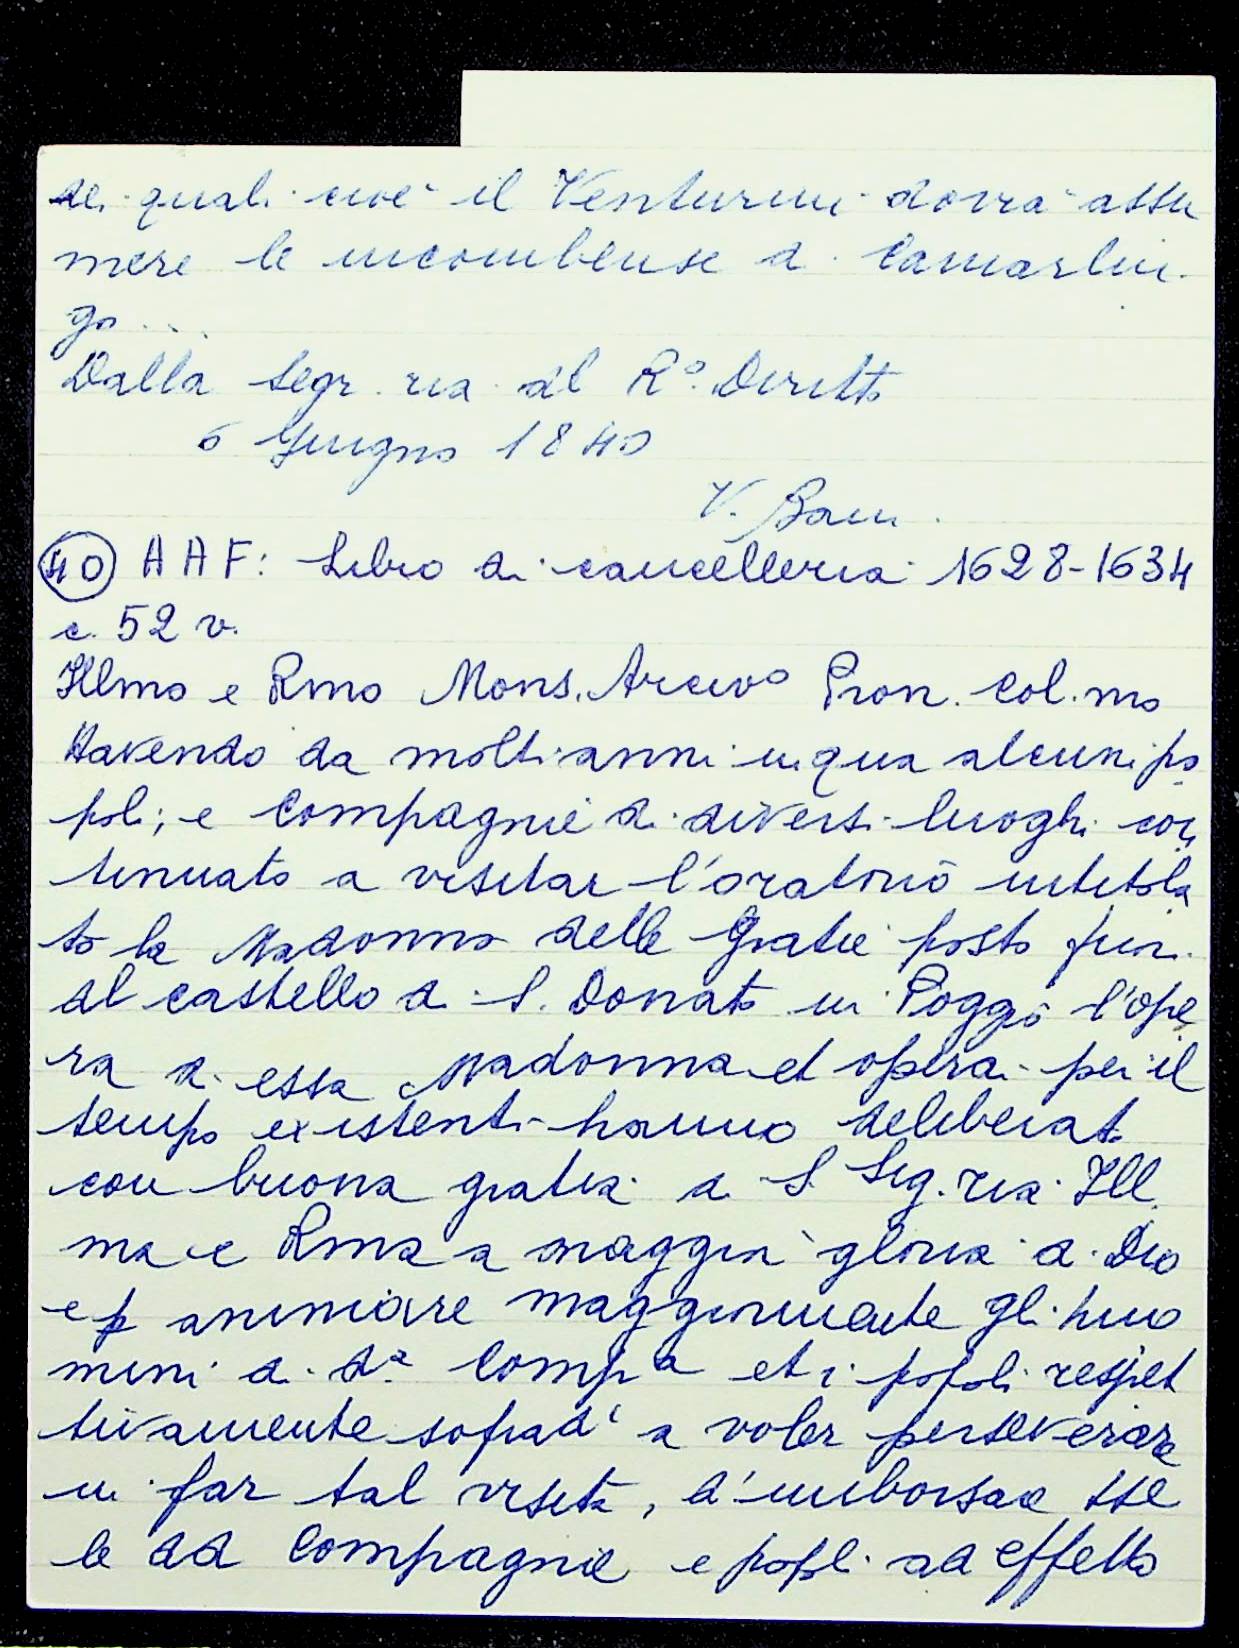 dei quali cioè il Venturini dovrà assu
mere le incombense di Camarlin-
go ...
Dalla Segr.ria del R.° Diritto
6 Giugno 1840
V. Bani.
40 AAF: Libro di cancelleria 1628-1634
c. 52 v.
Illmo e Rmo Mons. Arcivo Pron. Col.mo
Havendo da molti anni in qua alcuni po
poli; e Compagnie di diversi luoghi con
tinuato a visitar l'oratorio intitola
to la Madonna delle Gratie posto fuor.
del castello di S. Donato in Poggio l'ope
ra di essa Madonna et operai per il
tempo existenti hanno deliberato
con buona gratia di S. Sig.ria Ill.
ma e Rma a maggior gloria di Dio
e p animare maggiormente gli huo
mini di d.a Comp.a et i popoli respet
tivamente soprad.i a voler perseverare
in far tal visita, d'imborsare tte
le dd Compagnie e popoli ad effetto